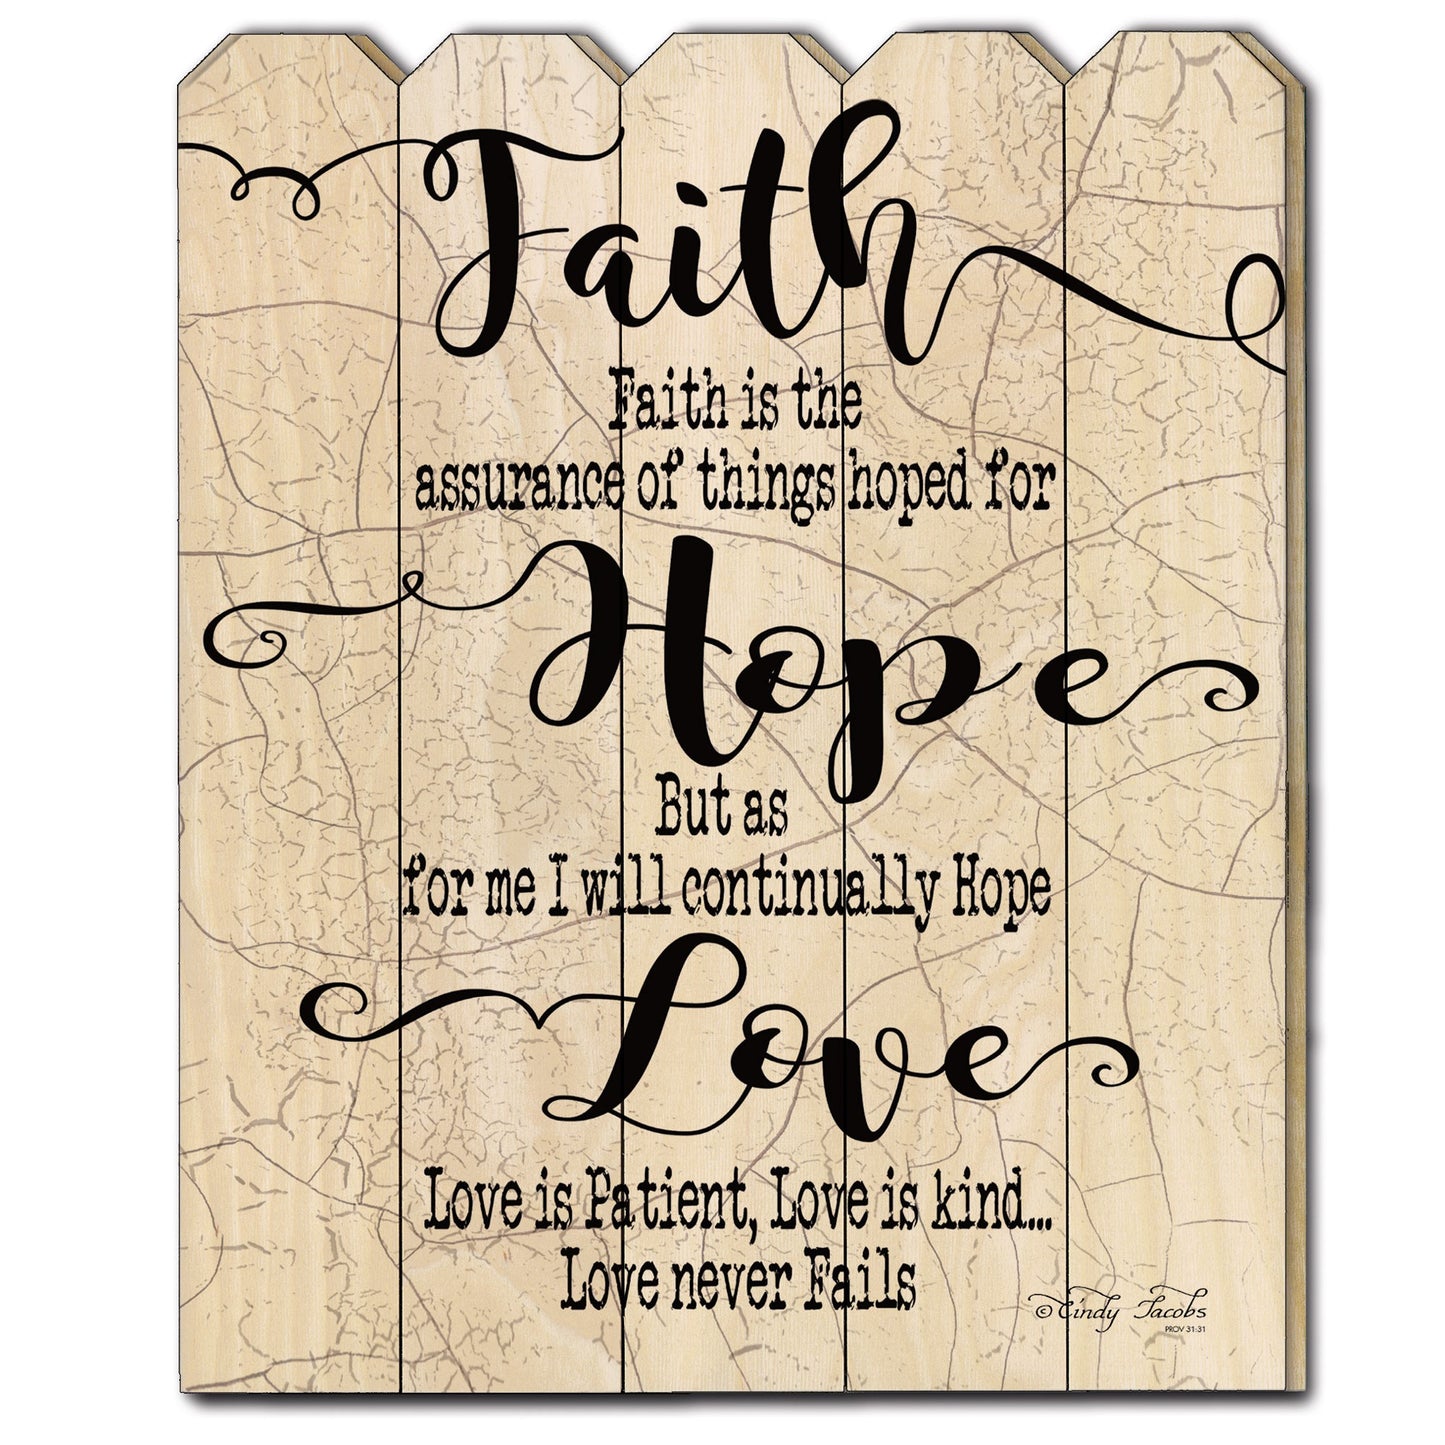 Faith
Faith is the
assurance of things hoped for
Hope
But as
for me I will continually Hope
Love
Love is Patient, Love is kind...
Love never Fails
© Cindy Jacobs
PROV 31:31